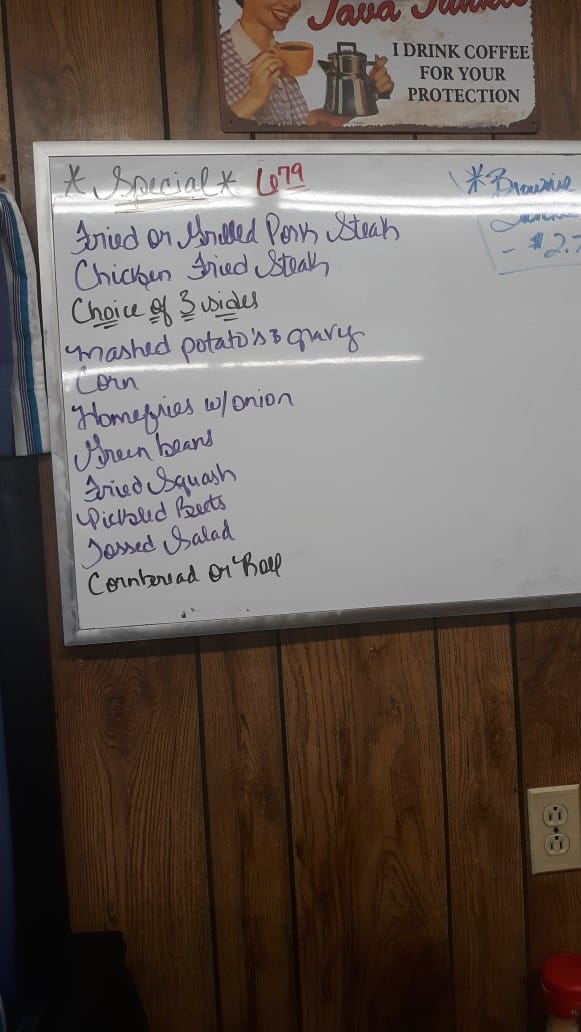 Java Junkie
I DRINK COFFEE
FOR YOUR
PROTECTION
* Special * 6 79
Fried or Grilled Pork Steak
Chicken Fried Steak
Choice of 3 sides
mashed potato's & gravy
Corn
Homefries w/onion
Green beans
Fried Squash
Pickled Beets
Tossed Salad
Cornbread or Roll
* Brownie
- $2.7